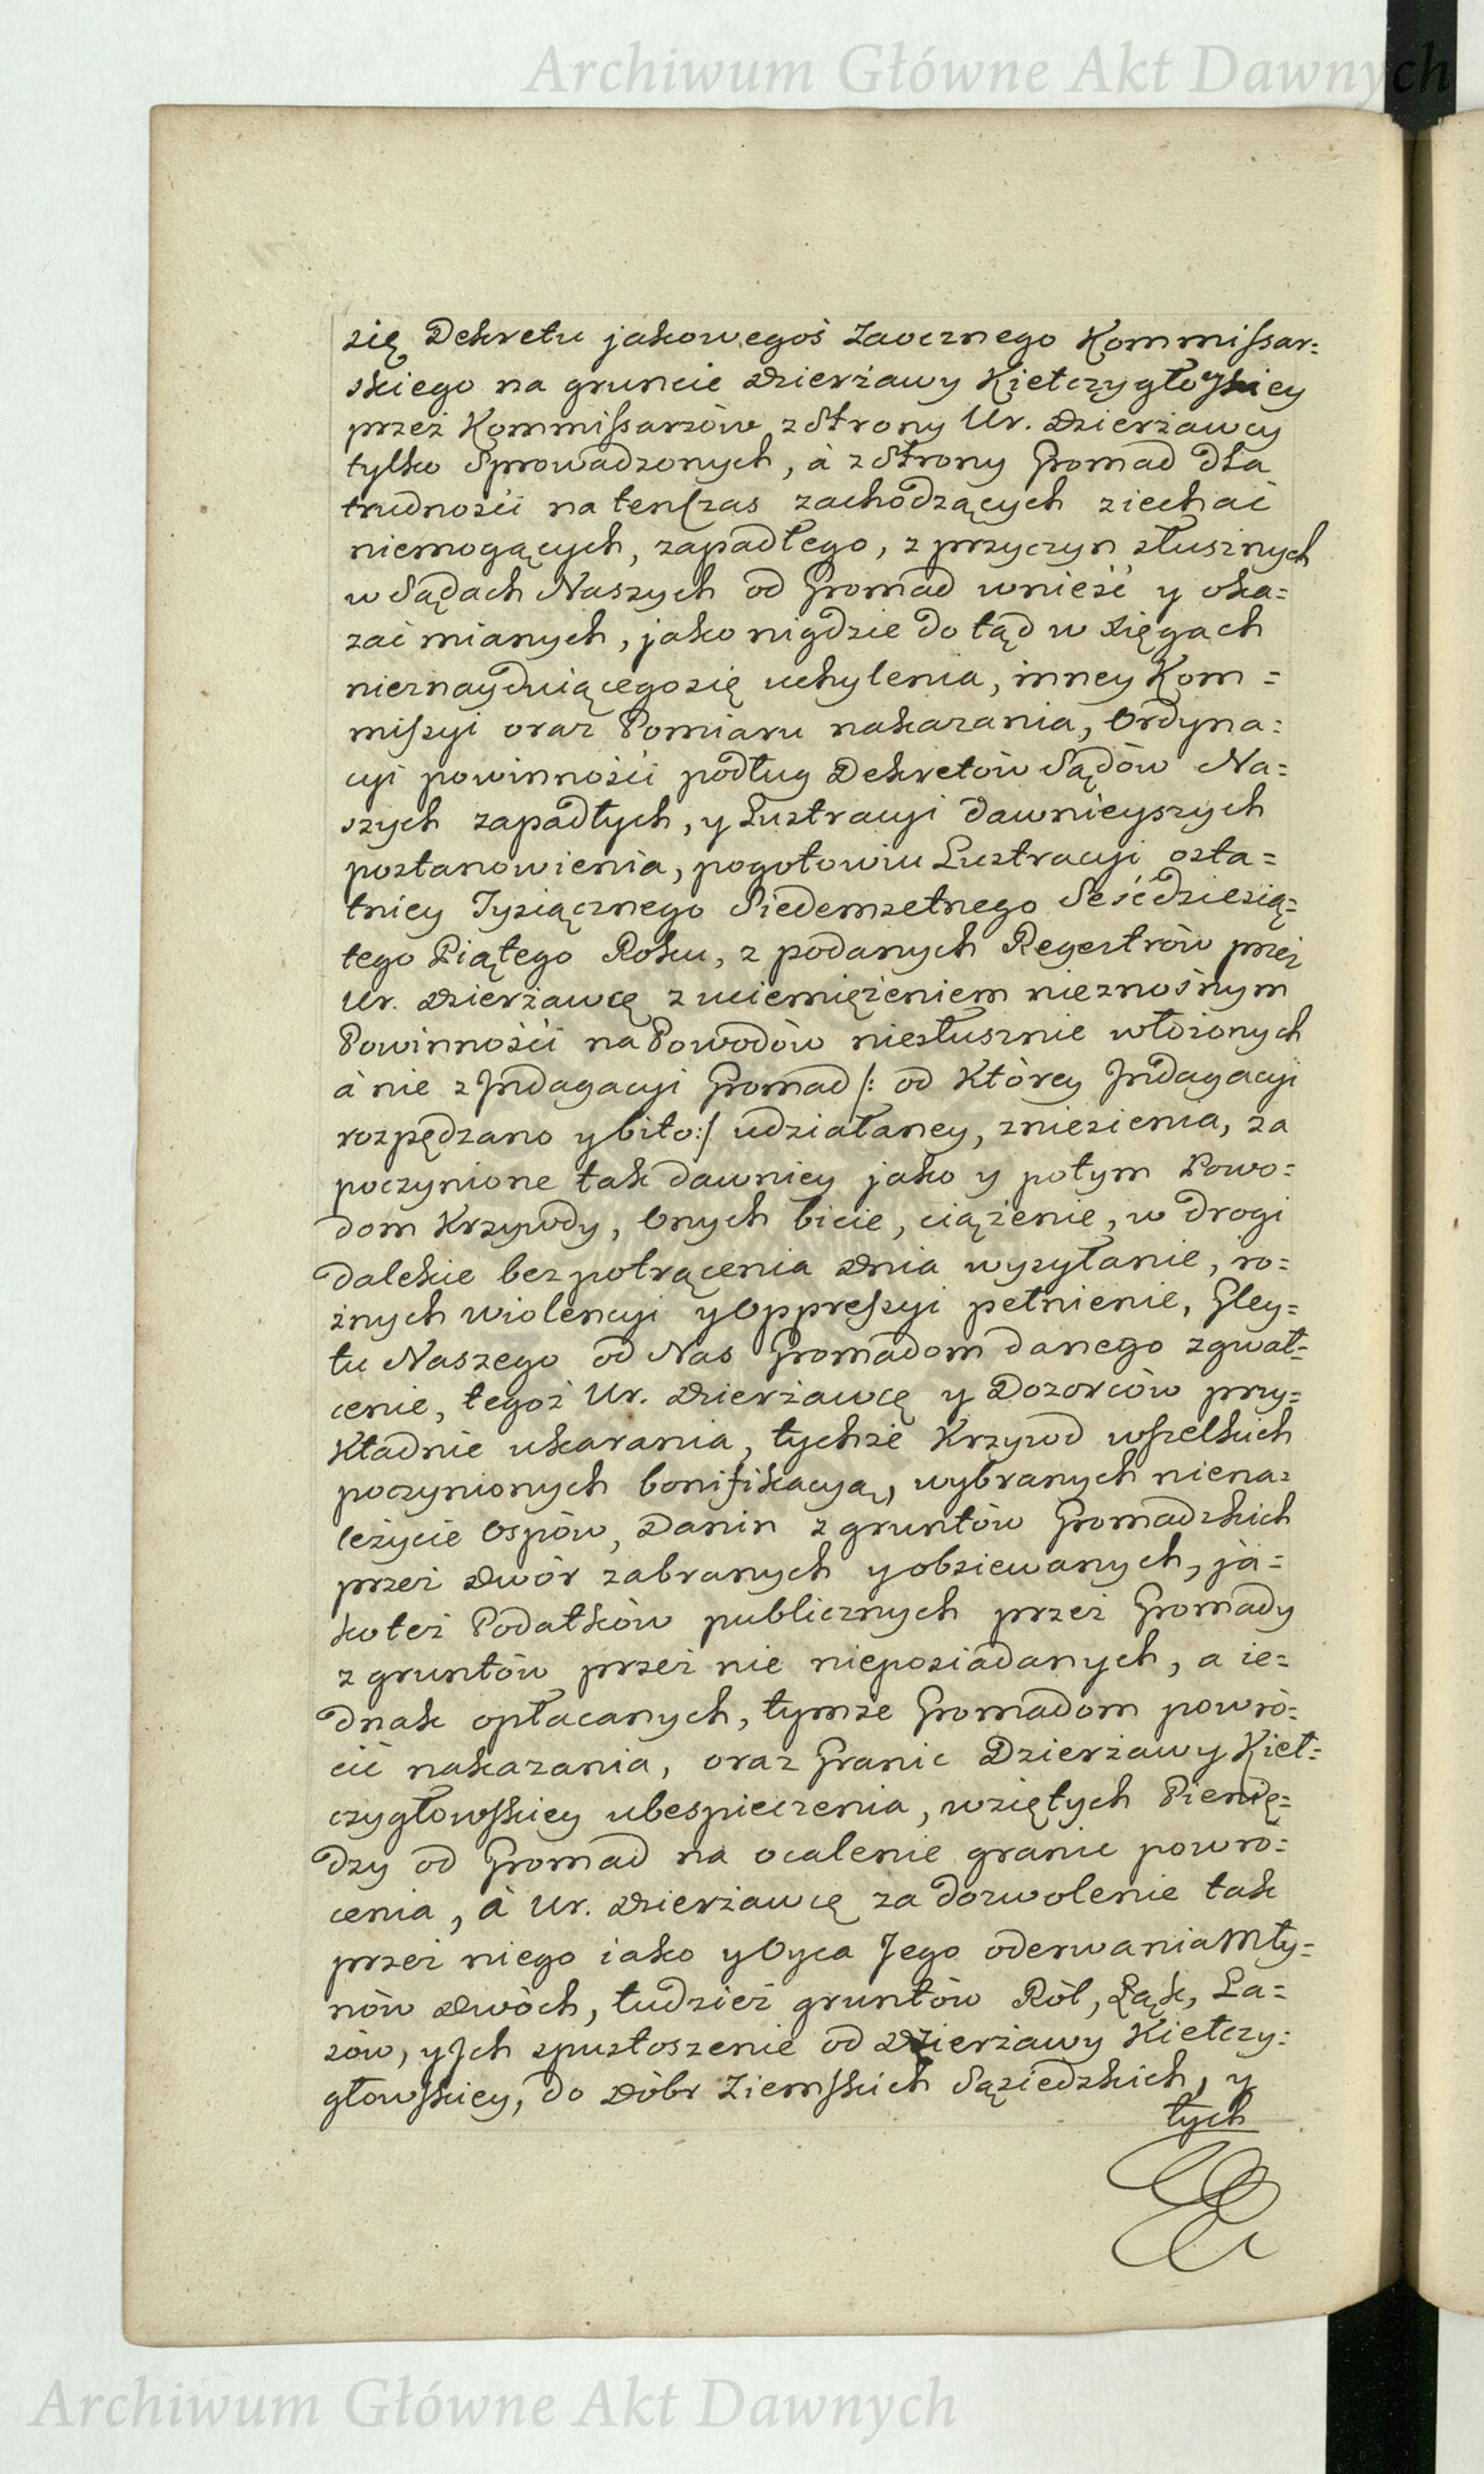 Archiwum Główne Akt Dawnych
się Dekretu jakowegoś Zaocznego Kommissar=
skiego na gruncie Dzierżawy Kiełczygłowskiey
przez Kommissarzów z Strony Ur. Dzierżawcy
tylko Sprowadzonych, à z Strony Gromad dla
trudności na tenczas zachodzących ziechać
niemogących, zapadłego, z przyczyn słusznych
w Sądach Naszych od Gromad wnieść y oka=
zać mianych, jako nigdzie do tąd w Xięgach
nieznayduiącego się uchylenia, inney Kom=
missyi oraz Pomiaru nakazania, Ordyna=
cyi powinności podług Dekretów Sądów Na=
szych zapadłych, y Lustracyi dawnieyszych
postanowienia, pogotowiu Lustracyi osta=
tniey Tysiącznego Siedemsetnego Seśćdziesią=
tego Piątego Roku, z podanych Regestrów przez
Ur. Dzierżawcę z uciemiężeniem nieznośnym
Powinności na Powodów niesłusznie włożonych
à nie z Jndagacyi Gromad /: od Którey Jndagacyi
rozpędzano y bito :/ udziałaney, zniesienia, za
poczynione tak dawniey jako y potym Powo=
dom Krzywdy, Onych bicie, ciążenie, w drogi
dalekie bez potrącenia dnia wysyłanie, ro=
żnych wiolencyi y Oppressyi pełnienie, Gley=
tu Naszego od Nas Gromadom danego zgwał=
cenie, tegoż Ur. Dzierżawcę y Dozorców przy=
kładnie ukarania, tychże Krzywd wszelkich
poczynionych bonifikacyą, wybranych niena=
leżycie Ospów, Danin z gruntów Gromadzkich
przez Dwór zabranych y obsiewanych, ja=
koteż Podatków publicznych przez Gromady
z gruntów przez nie nieposiadanych, a ie=
dnak opłacanych, tymże Gromadom powró=
cić nakazania, oraz Granic Dzierżawy Kieł=
czygłowskiey ubespieczenia, wziętych Pienię=
dzy od Gromad na ocalenie granic powró=
cenia, à Ur. Dzierżawcę za dozwolenie tak
przez niego iako y Oyca Jego oderwania Mły=
nów dwóch, tudzież gruntów Ról, Łąk, La=
sów, y Jch spustoszenie od Dzierżawy Kiełczy=
głowskiey, do Dóbr Ziemskich Sąsiedzkich, y
tych
Archiwum Główne Akt Dawnych